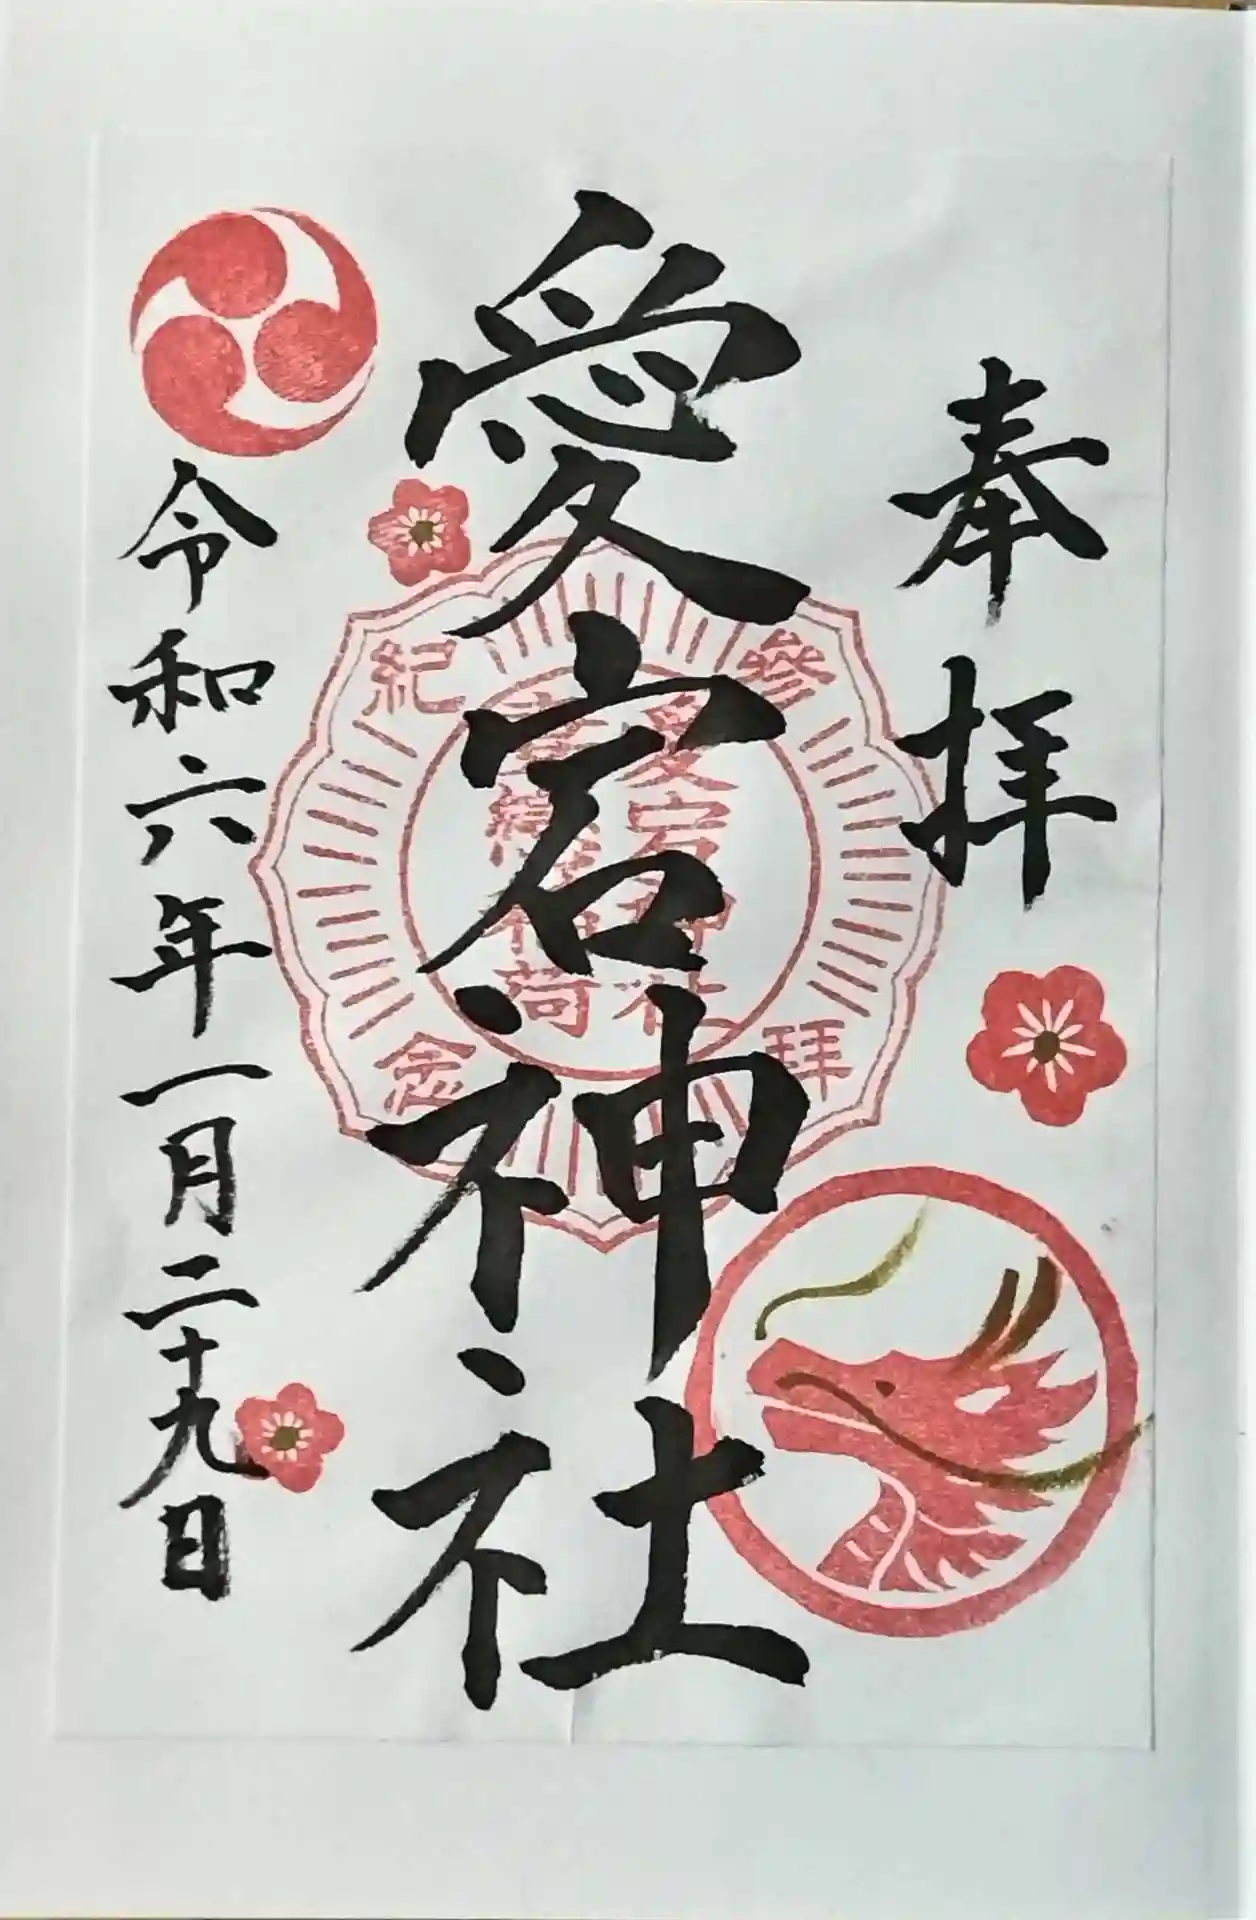 奉拝
愛宕神社
令和六年一月二十九日
参拝
紀念
愛宕神社
稲荷